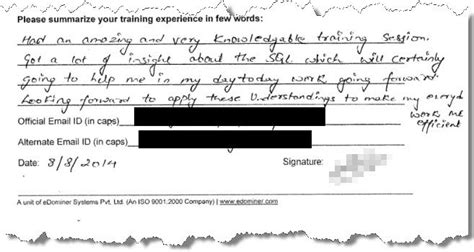 Please summarize your training experience in few words:
Had an amazing and very knowledgable training session.
Got a lot of insight about the SQL which will certainly
going to help me in my day today work going forward.
Looking forward to apply these Understandings to make my
work efficient
Official Email ID (in caps)
Alternate Email ID (in caps)
Date: 8/8/2014 Signature:
A unit of eDominer Systems Pvt. Ltd. (An ISO 9001:2000 Company) | www.edominer.com